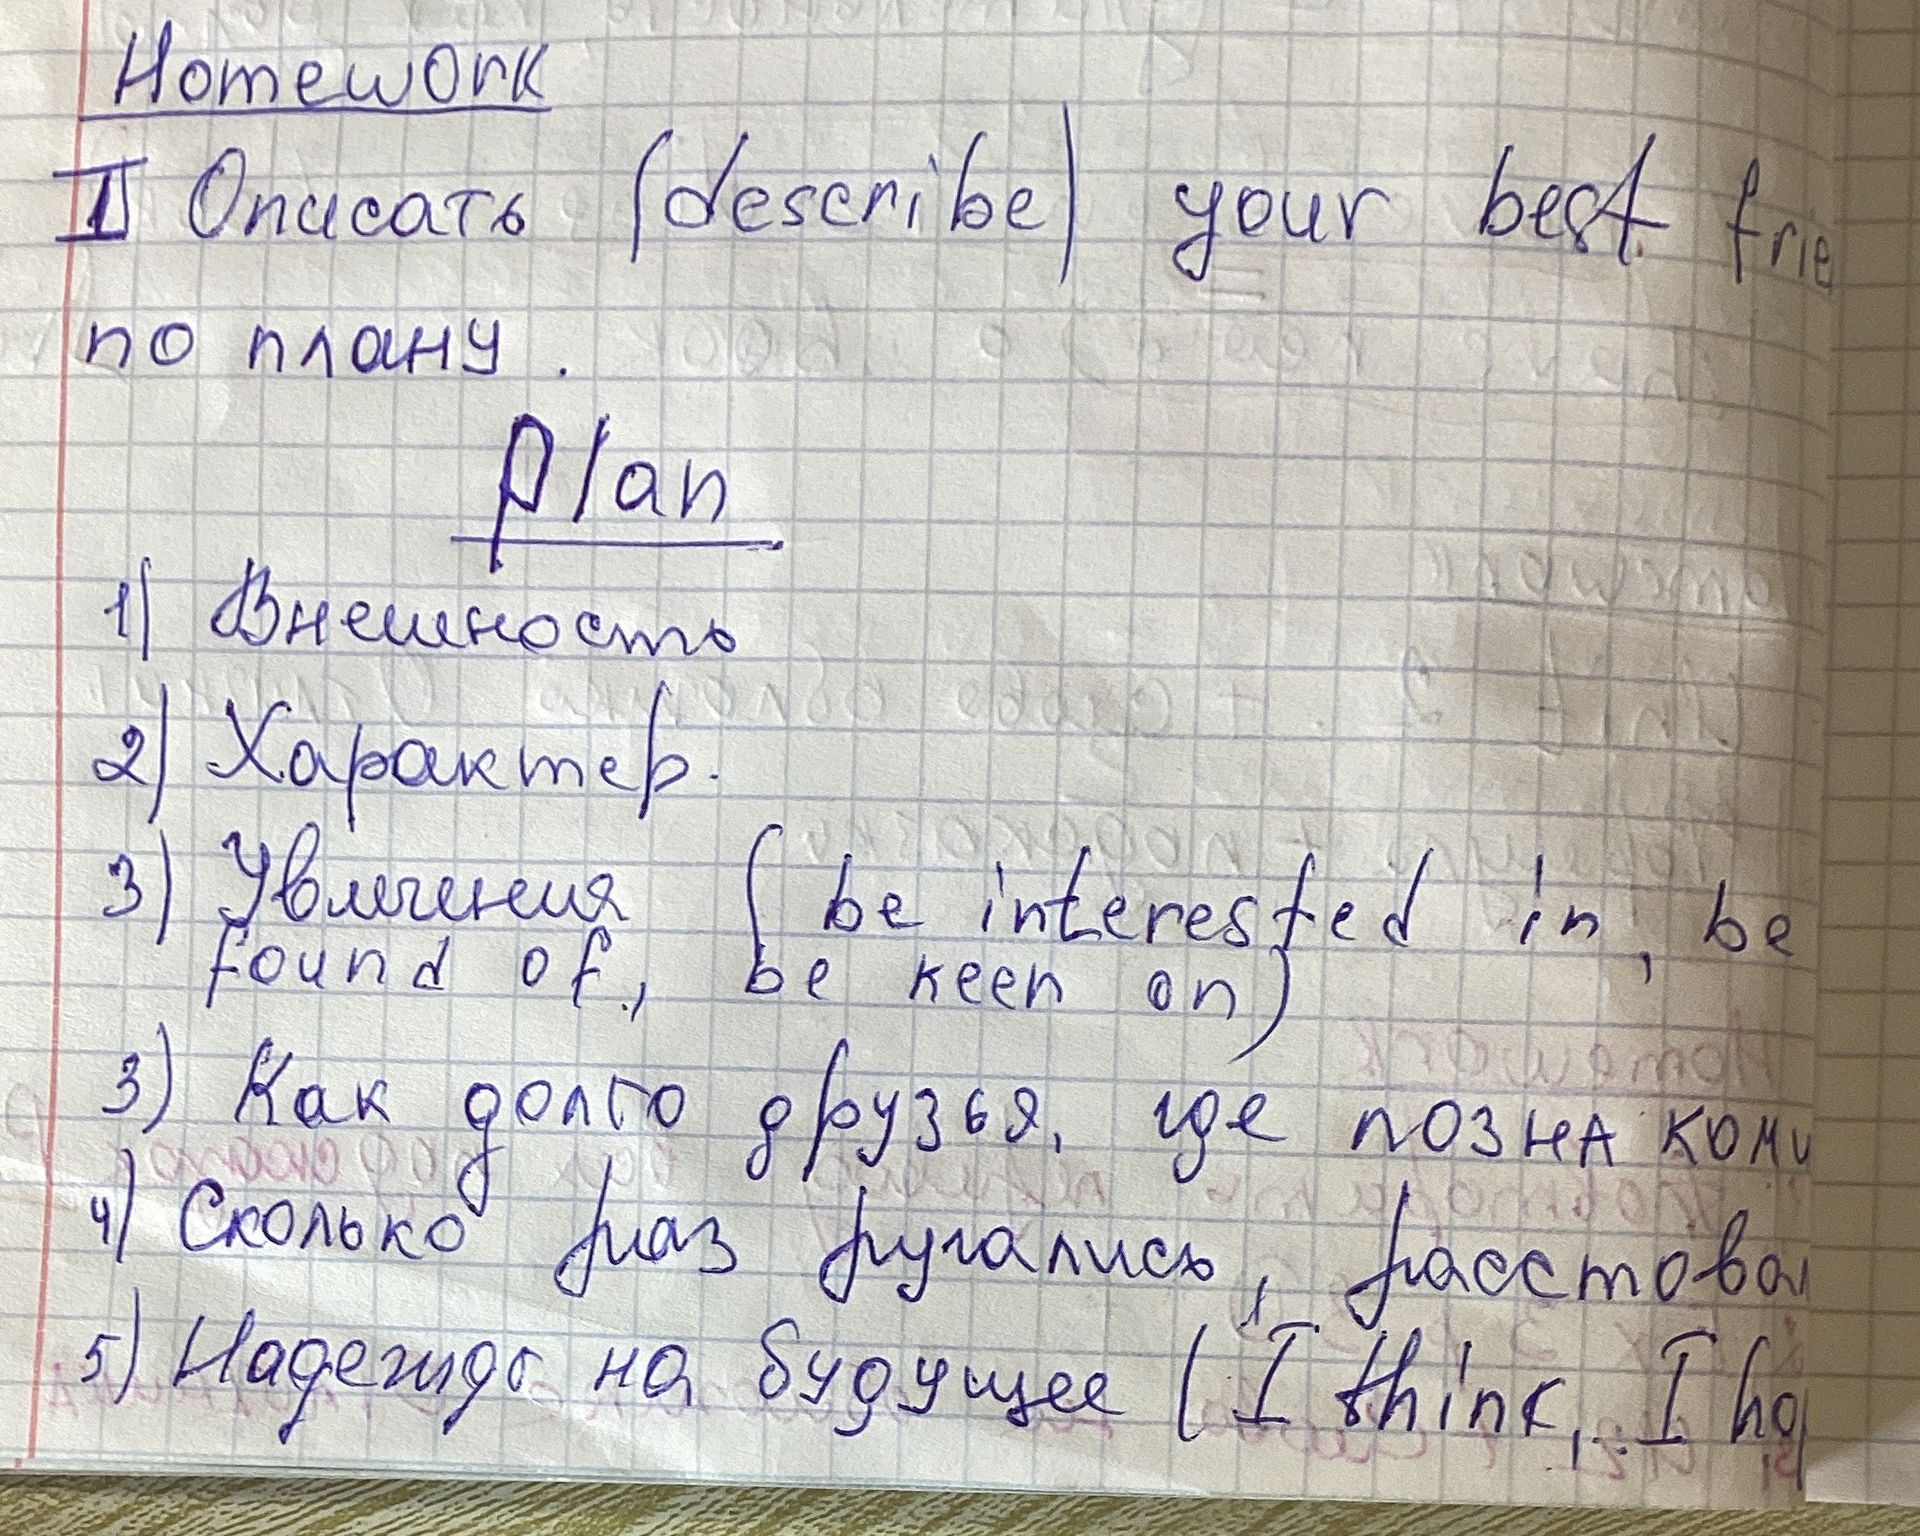 Homework
I Описать (describe) your best frie
по плану.
Plan
1) Внешность
2) Характер.
3) Увлечения (be interested in, be
found of, be keen on)
3) Как долго друзья, где познаком
4) Сколько раз ругались, расстова
5) Надежды на будущее (I think, I ho